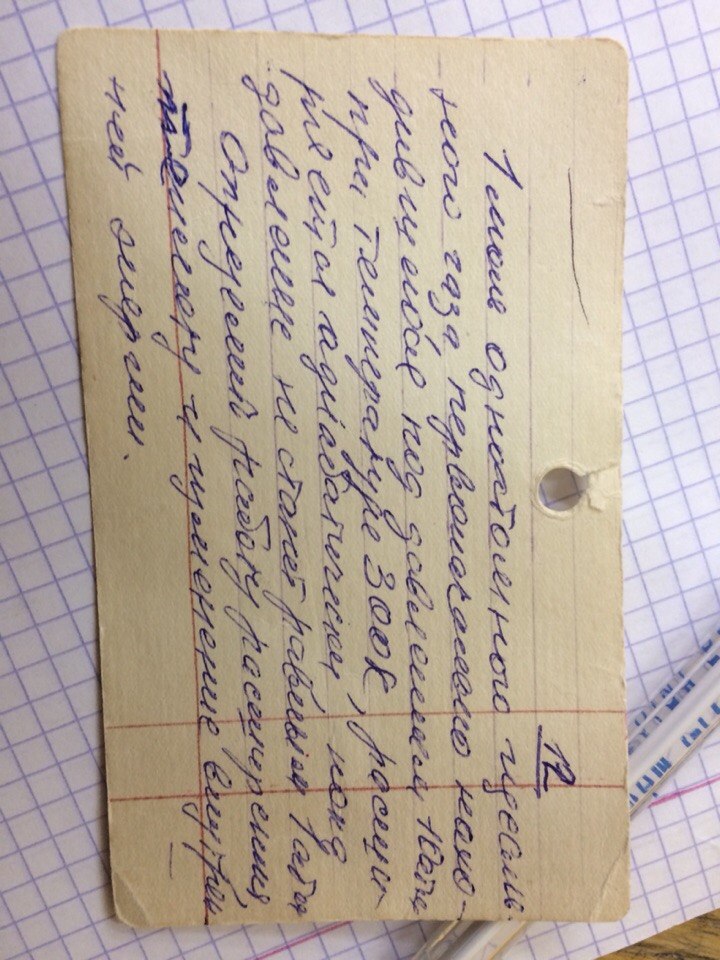 12
1 моль одноатомного идеаль-
ного газа первоначально нахо-
дившейся под давлением 10 атм
при температуре 300К, расши-
ряется адиабатически, пока
давление не станет равным 1 атм
Определить работу расширения
и изменение внутрен
ней энергии.